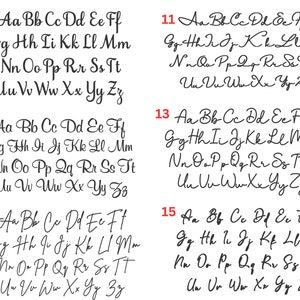 Aa Bb Cc Dd Ee Ff
Gg Hh Ii Kk Ll Mm
Nn Oo Pp Qq Rr Ss Tt
Uu Vv Ww Xx Yy Zz
11
Aa Bb Cc Dd Ee Ff
Gg Hh Ii Jj Kk Ll Mm
Nn Oo Pp Qq Rr Ss Tt
Uu Vv Ww Xx Yy Zz
Aa Bb Cc Dd Ee Ff
Gg Hh Ii Jj Kk Ll Mm
Nn Oo Pp Qq Rr Ss Tt
Uu Vv Ww Xx Yy Zz
13
Aa Bb Cc Dd Ee Ff
Gg Hh Ii Jj Kk Ll Mm
Nn Oo Pp Qq Rr Ss Tt
Uu Vv Ww Xx Yy Zz
Aa Bb Cc Dd Ee Ff
Gg Hh Ii Jj Kk Ll Mm
Nn Oo Pp Qq Rr Ss Tt
Uu Vv Ww Xx Yy Zz
15
Aa Bb Cc Dd Ee Ff
Gg Hh Ii Jj Kk Ll Mm
Nn Oo Pp Qq Rr Ss Tt
Uu Vv Ww Xx Yy Zz